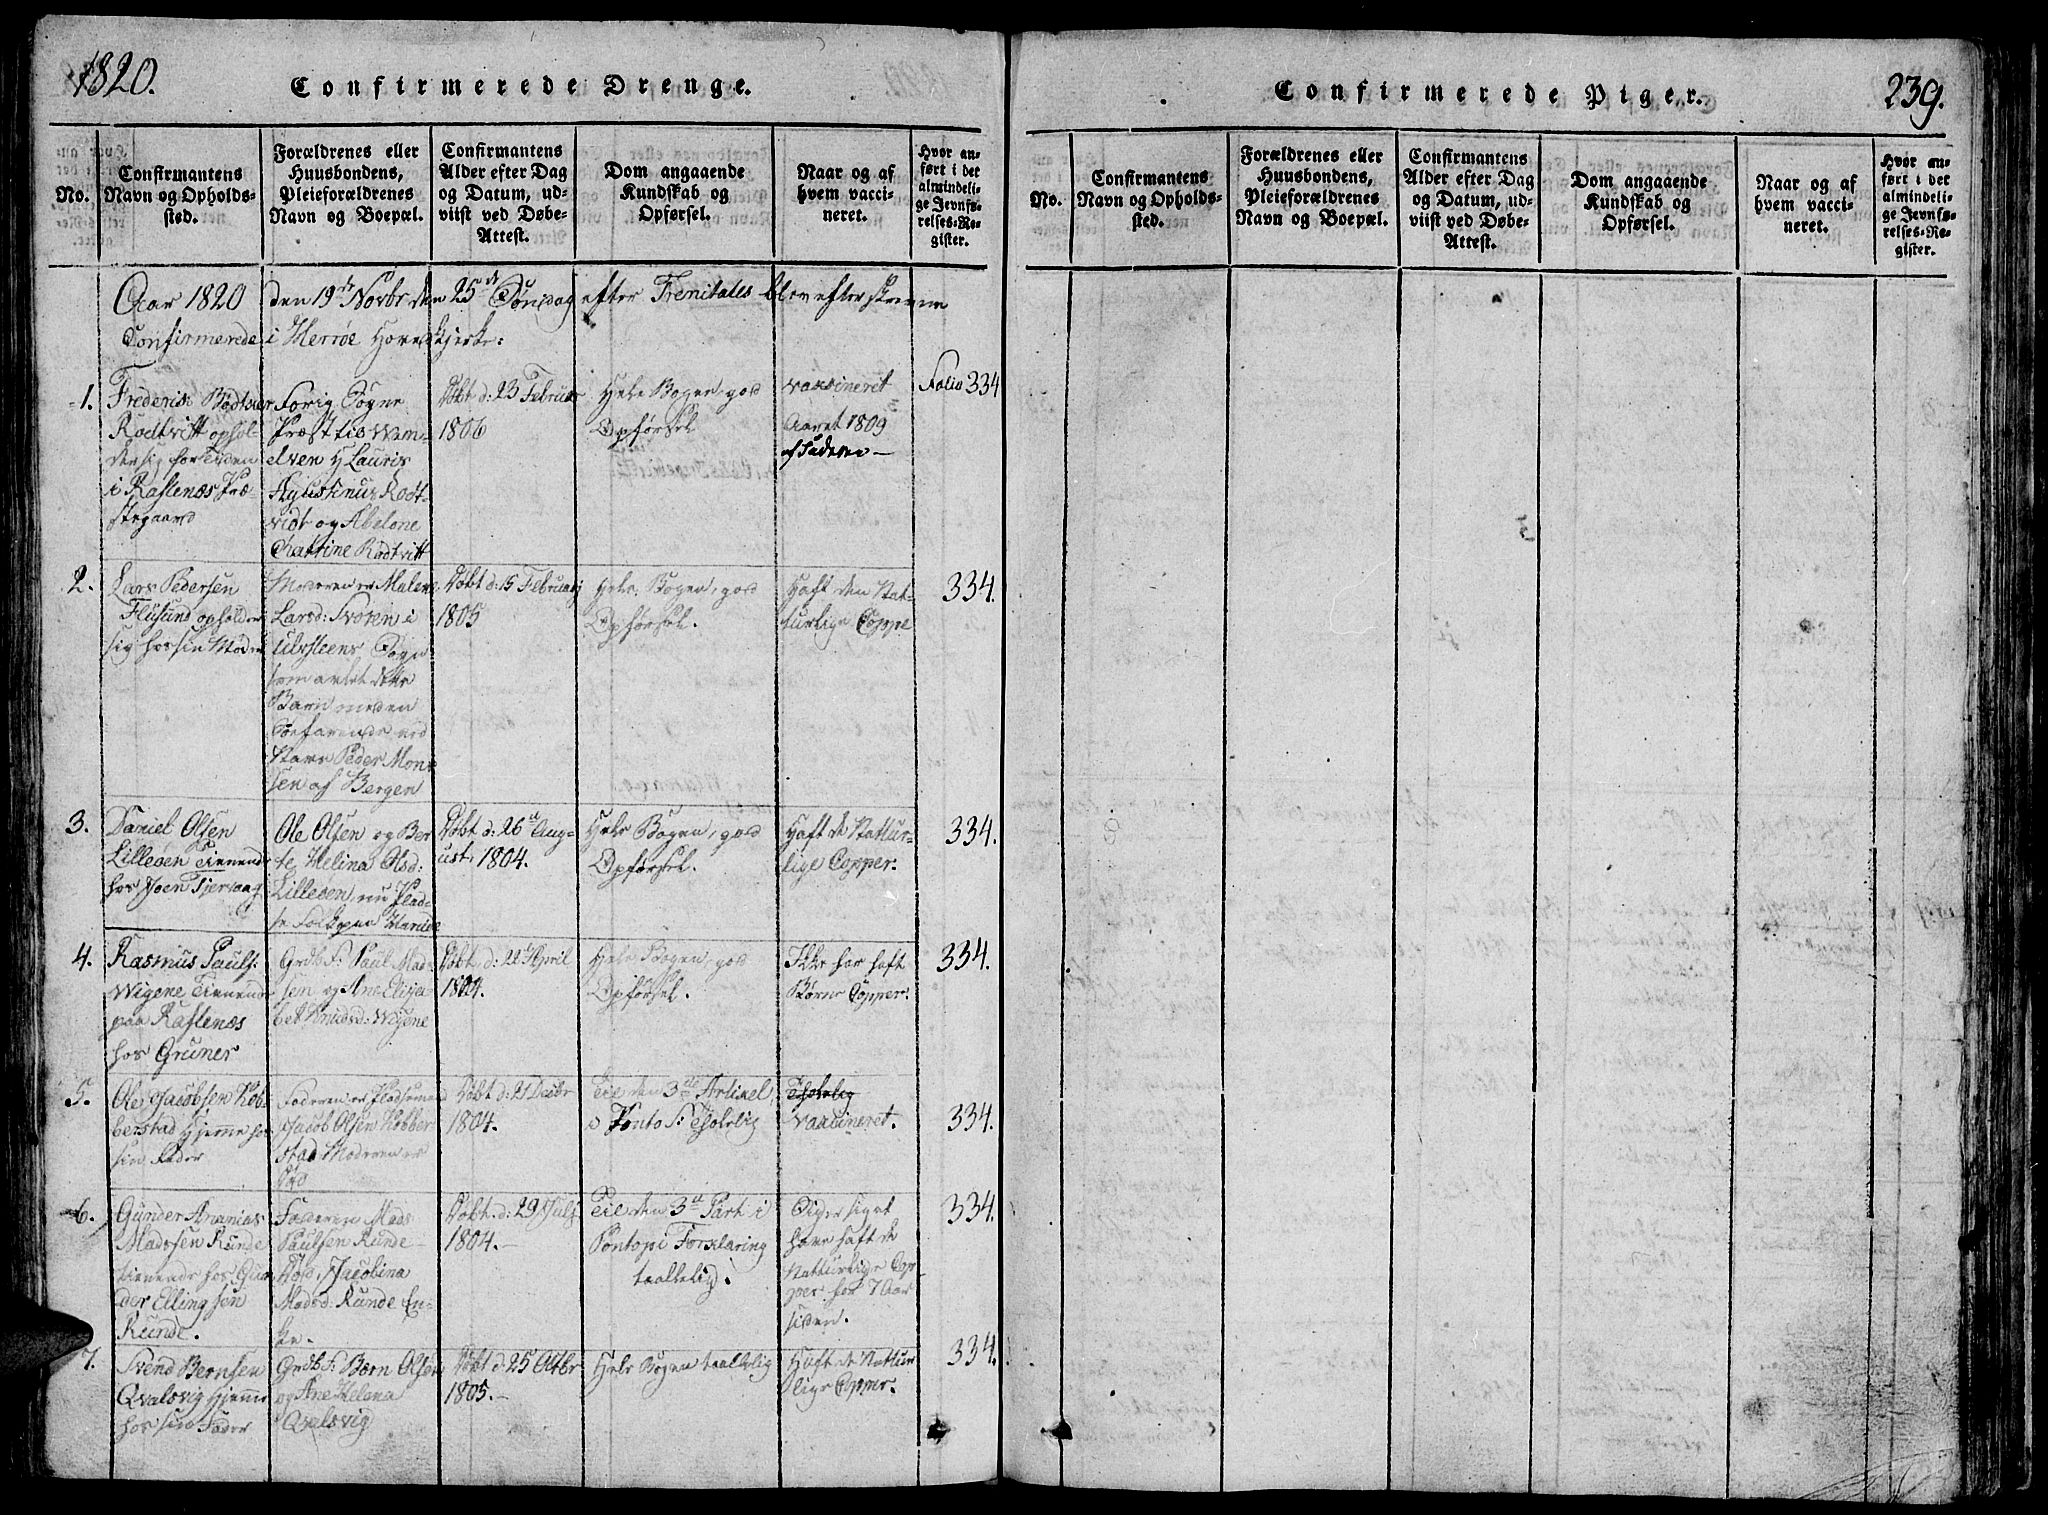 1820.
Confirmerede Drenge.
No.
Confirmantens
Navn og Opholds-
sted.
Forældrenes eller
Huusbondens,
Pleieforældrenes
Navn og Boepæl.
Confirmantens
Alder efter Dag
og Datum, ud-
viist ved Døbe-
Attest.
Dom angaaende
Kundskab og
Opførsel.
Naar og af
hvem vacci-
neret.
Hvor an-
ført i det
almindeli-
ge Jevnfø-
relses-Re-
gister.
Aar 1820 den 19de Novbr den 25de Søndag efter Trenitates blev efterskrevne
Confirmerede i Herrøe Hovedkjerke:
1.
Frederik Bødtker
Rodtvitt ophol-
der sig for Tiden
i Raftenæs Præ-
stegaard
Forig Sogne
Præst til
elven H Lauris
Agustinus Rodt-
vidt og Abelone
Cattine Rodtvitt
Døbt d: 23 Februar
1806
Hele Bogen, god
Opførsel
vaxineret
Aaret 1809
af Faderen –
Folio 334
2.
Lars Pedersen
Flusund opholder
sig hos sin Moder
Moderen er Malene
Larsd:
i
Ulvsteens Sogn
som avlet dette
Barn med en
Søefarende ved
Navn Peder Mon-
sen af Bergen
Døbt d: 15 Februarj
1805
Hele Bogen, god
Opførsel.
Haft den Nat-
turlige Coppe
334.
3.
Daniel Olsen
Lilleøen Tienende
hos Joen Tjervaag
Ole Olsen og Ber
te Helina Olsd:
Lilleøen, nu Plad-
se Folk paa
Døbt d: 26 Aug-
ust: 1804.
Hele Bogen, god
Opførsel.
Haft de Nattur-
lige Copper.
334.
4.
Rasmus Pauls:
Wigene Tienende
paa Raftenæs
hos Gruner
Grdb F: Paul Mad-
sen og Ane Elisa-
bet Knudsd: Wigene
Døbt d: 22 April
1804.
Hele Bogen, god
Opførsel.
Ikke har haft
Børne Copper.
334.
5.
Ole Jacobsen Kob-
berstad Hjemme hos
sin Fader
Faderen er Pladsemand
Jacob Olsen Kobber
stad Moderen er
død
Døbt d: 21 Decbr
1804.
Til den 3de Artikel,
i Ponto F: Tholelig
Tholelig
Vaxineret.
334.
6.
Gunder Ananias
Madssen Runde
tienende hos Gun
der Ellingsen
Runde.
Faderen Mads
Paulsen Runde
død, Jacobina
Madsd: Runde En-
ke.
Døbt d: 29 Julj
1804.
Til den 3de Part i
Pontopi Forklaring
taallelig.
Siger sigat
have haft de
Natturlige Cop
per for 7 Aar
siden.
334.
7.
Svend Bernsen
Qvalsvig Hjemme
hos sin Fader
Grdb F: Børn Olsen
og Ane Helena
Qvalsvig
Døbt d: 25 Octbr
1805.
Hele Bogen taallelig
Haft de Nattur
lige Copper.
334.
Confirmerede Piger.
239.
No.
Confirmantens
Navn og Opholds-
sted.
Forældrenes eller
Huusbondens,
Pleieforældrenes
Navn og Boepæl.
Confirmantens
Alder efter Dag
og Datum, ud-
viist ved Døbe-
Attest.
Dom angaaende
Kundskab og
Opførsel.
Naar og af
hvem vacci-
neret.
Hvor an-
ført i det
almindeli-
ge Jevnfø-
relses-Re-
gister.